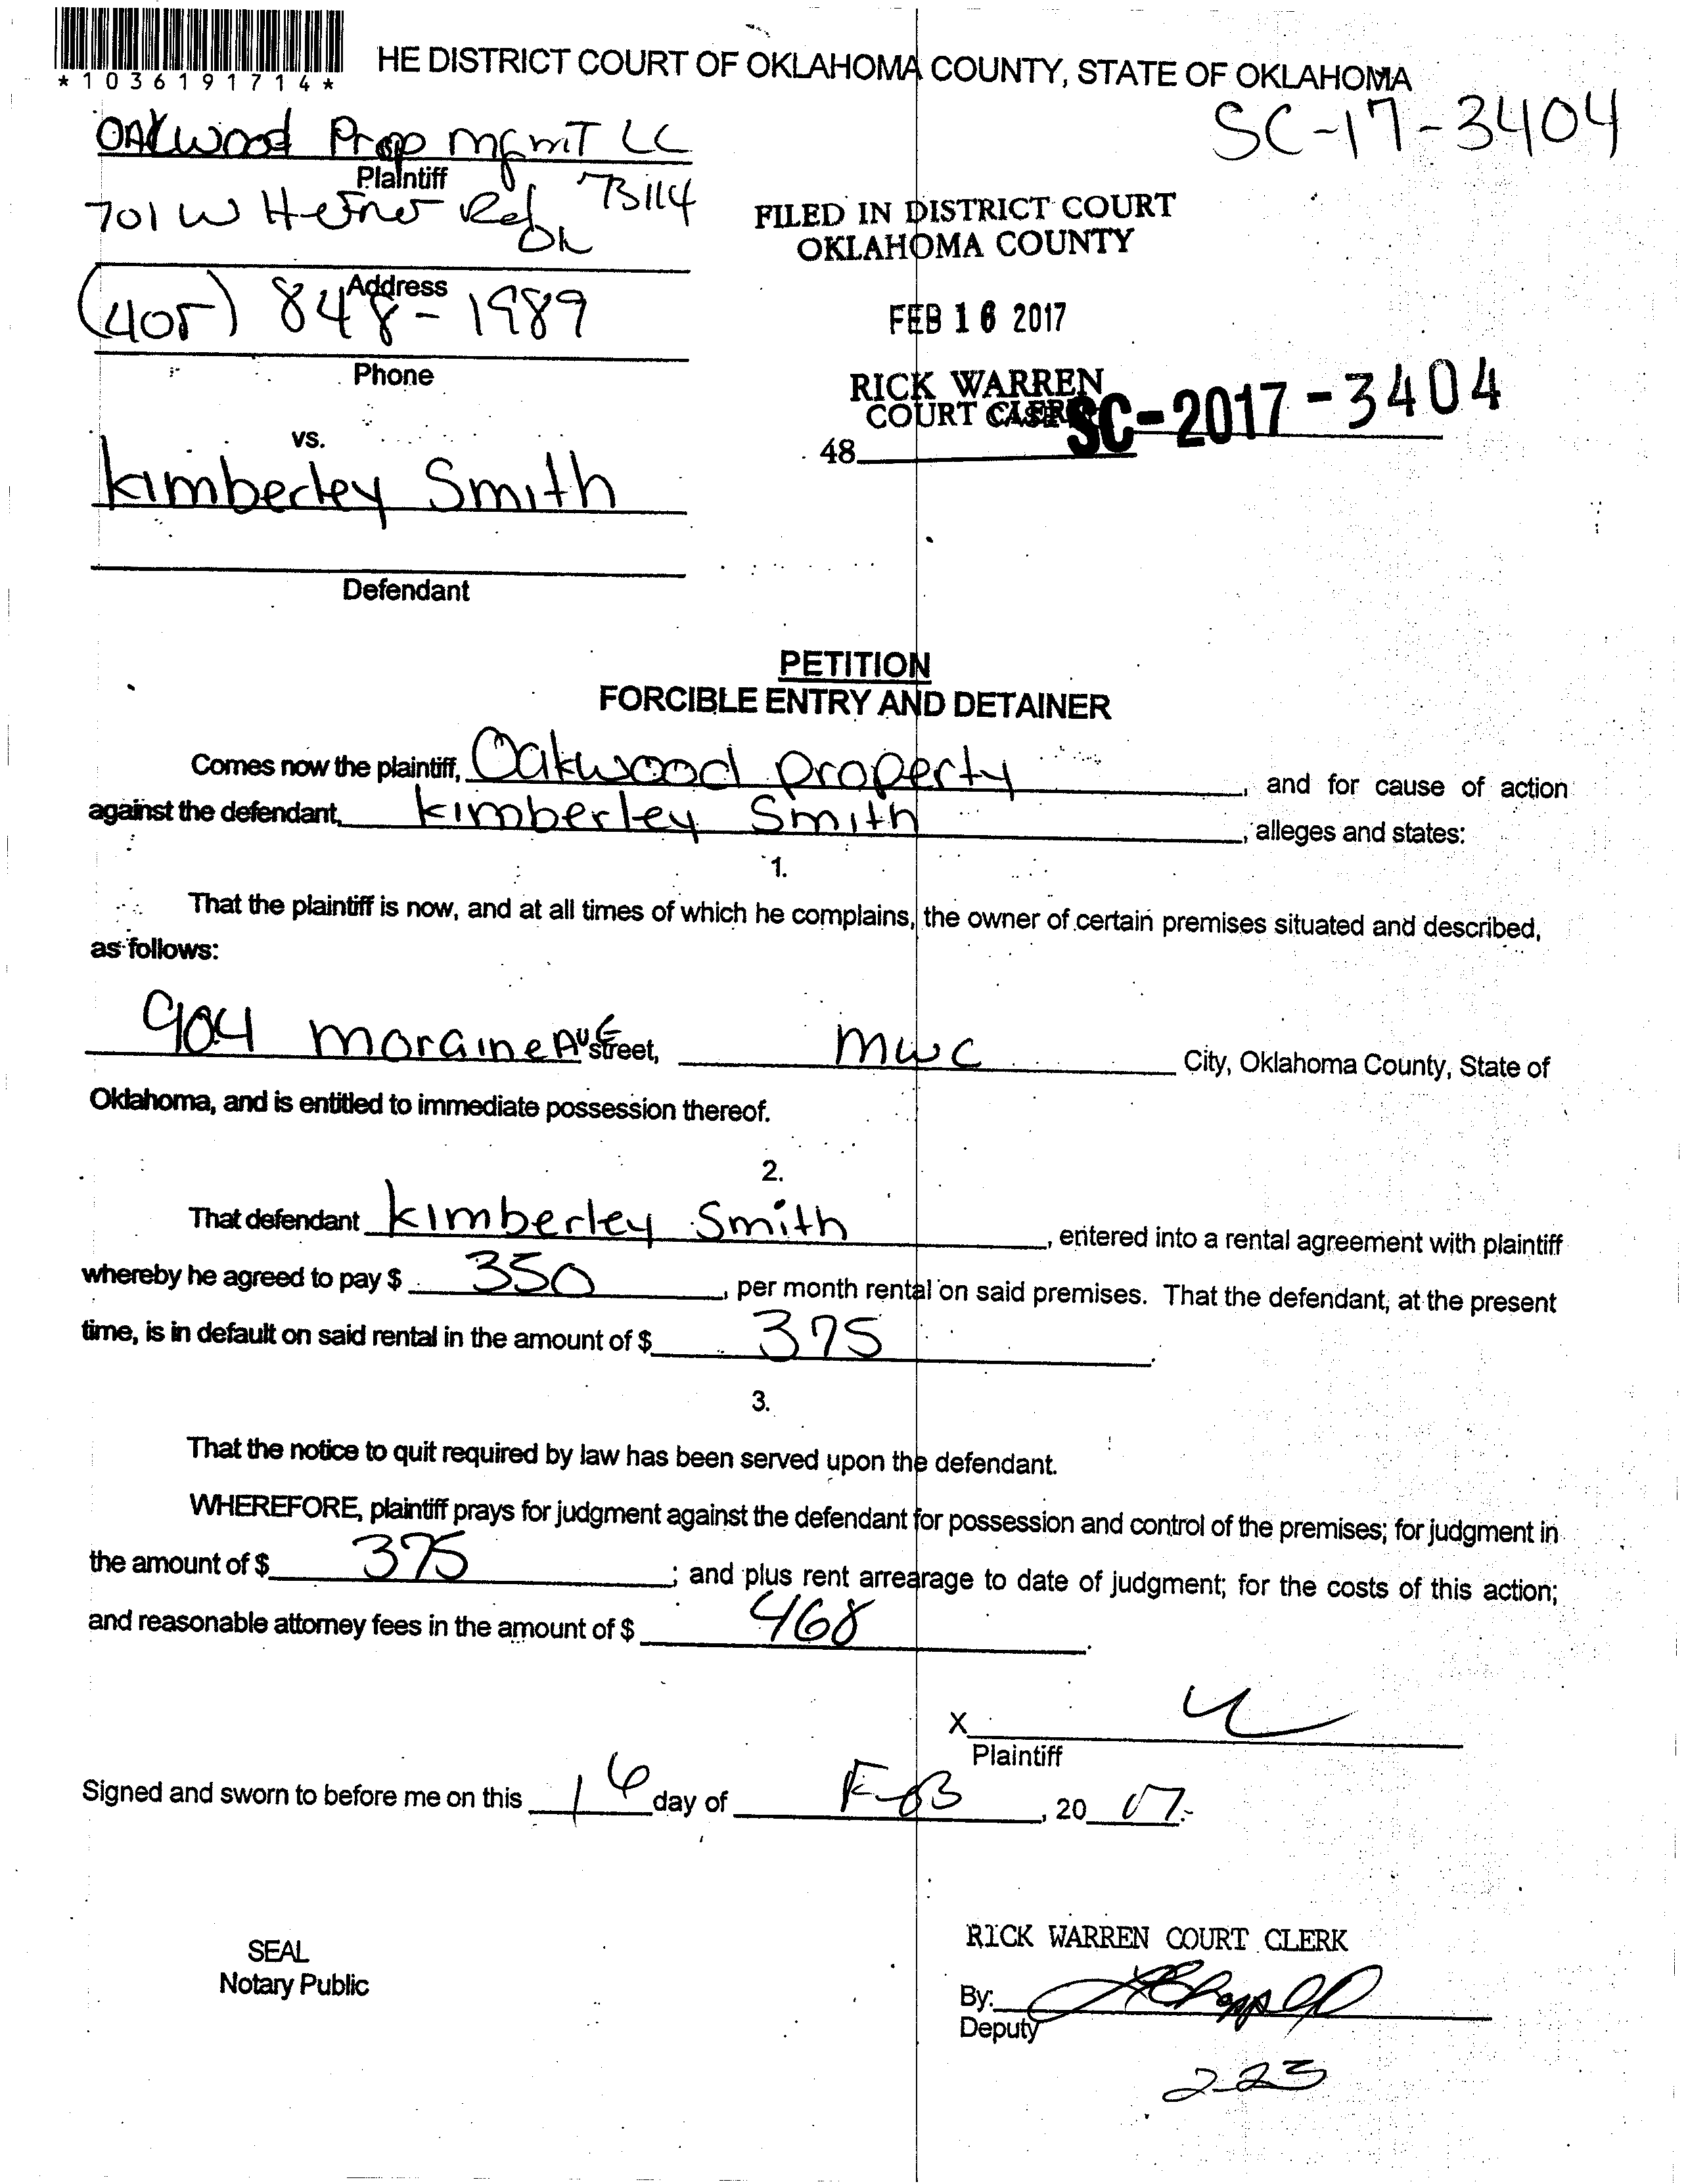 *1036191714*
HE DISTRICT COURT OF OKLAHOMA COUNTY, STATE OF OKLAHOMA
SC-17-3404
OAKwood Prop mgmT LC
Plaintiff
701 W Hefner Rd 73114
OK
Address
(405) 848-1989
Phone
FILED IN DISTRICT COURT
OKLAHOMA COUNTY
FEB 16 2017
RICK WARREN
COURT CLERK
48 SC-2017-3404
vs.
kimberley Smith
Defendant
PETITION
FORCIBLE ENTRY AND DETAINER
Comes now the plaintiff, Oakwood property, and for cause of action
against the defendant, kimberley Smith, alleges and states:
1.
That the plaintiff is now, and at all times of which he complains, the owner of certain premises situated and described,
as follows:
904 moraine Ave street, mwc City, Oklahoma County, State of
Oklahoma, and is entitled to immediate possession thereof.
2.
That defendant kimberley Smith, entered into a rental agreement with plaintiff
whereby he agreed to pay $ 350, per month rental on said premises. That the defendant, at the present
time, is in default on said rental in the amount of $ 375.
3.
That the notice to quit required by law has been served upon the defendant.
WHEREFORE, plaintiff prays for judgment against the defendant for possession and control of the premises; for judgment in
the amount of $ 375; and plus rent arrearage to date of judgment; for the costs of this action;
and reasonable attorney fees in the amount of $ 468.
X
Plaintiff
Signed and sworn to before me on this 16 day of FEB, 20 17.
SEAL
Notary Public
RICK WARREN COURT CLERK
By:
Deputy
2-23